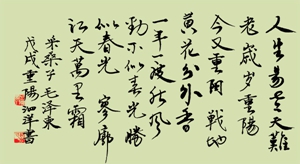 人生易老天難
老歲岁重陽
今又重阳戰地
黃花分外香
一年一度秋风
勁不似春光勝
似春光 寥廓
江天萬里霜
采桑子 毛泽東
戊戌重陽 泗洋書